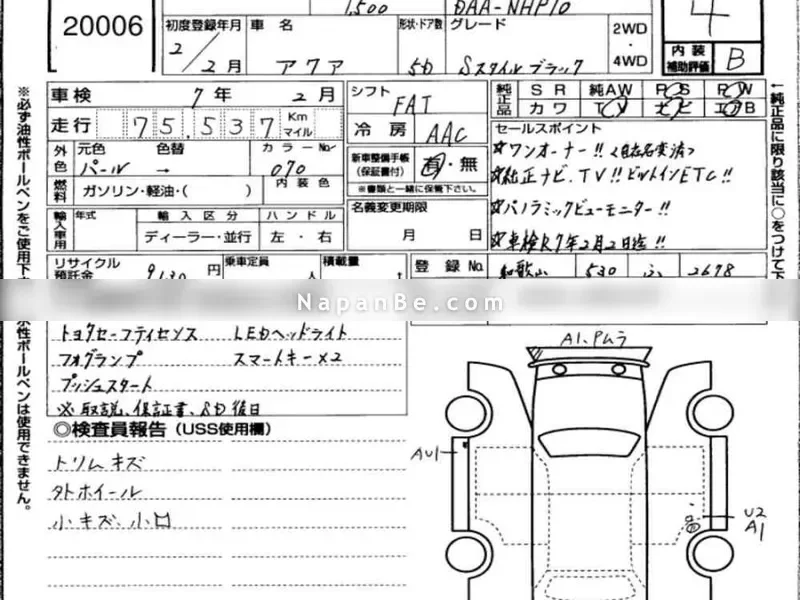 1,500 DAA-NHP10
20006
初度登録年月 車名 形状・ドア数 グレード
2/2月 アクア 5D Sスタイルブラック
2WD
・
4WD
4
内装
補助評価 B
車検 7年 2月
走行 75,537 Km
マイル
シフト FAT
冷房 AAC
純正品 SR 純AW PS PW
カワ TV ナビ エアB
セールスポイント
☆ワンオーナー!!
☆純正ナビ.TV!!ビルトインETC!!
☆パノラミックビューモニター!!
☆車検R7年2月2日迄!!
外色 元色 色替 カラーNo
パール → 070
燃料 ガソリン・軽油・( ) 内装色
新車整備手帳
(保証書付) 有・無
※書類と一緒に保管下さい。
輸入車用 年式 輸入区分 ハンドル
ディーラー・並行 左・右
名義変更期限
月 日
リサイクル
預託金 9130円 乗車定員 人 積載量 t
登録No 和歌山 530 2698
NapanBe.com
トヨタセーフティセンス LEDヘッドライト
フォグランプ スマートキー×2
プッシュスタート
※取説、保証書、SD後日
◎検査員報告(USS使用欄)
トリムキズ
外ホイール
小キズ、小凹
A1、Pムラ
AU1
U2
A1
※必ず油性ボールペンをご使用下
水性ボールペンは使用できません。
←純正品に限り該当に○をつけて下